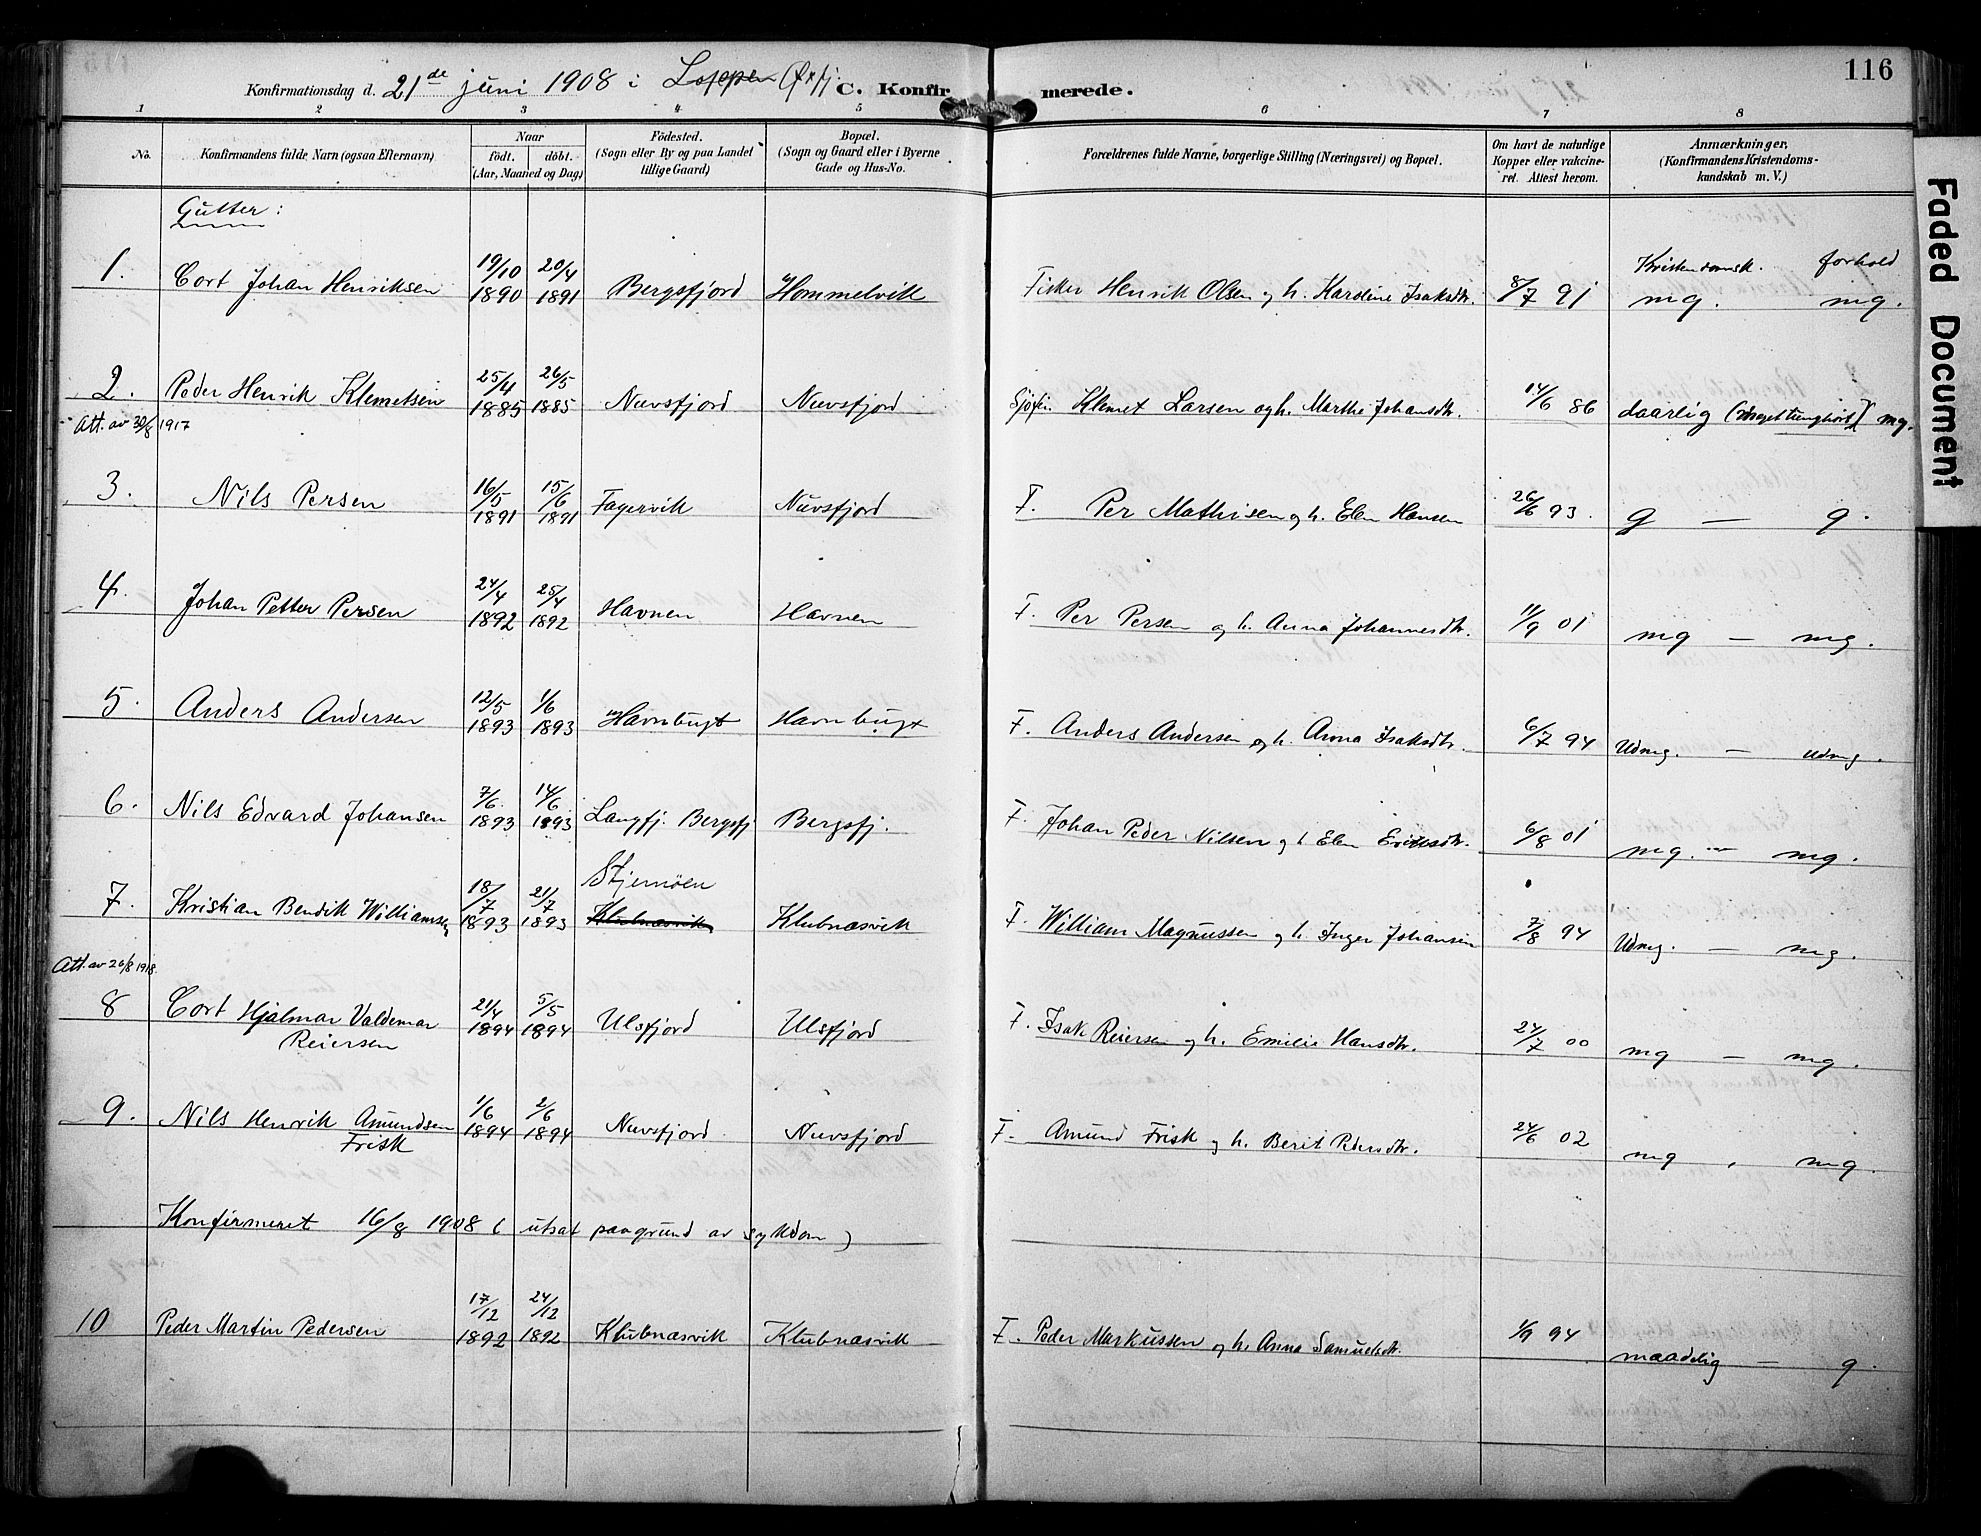 116
Konfirmationsdag d. 21de juni 1908 i Loppen C. Konfirmerede.
1 2 3 4 5 6 7 8
No. Konfirmandens fulde Navn (ogsaa Efternavn) Naar født. døbt. (Aar, Maaned og Dag) Fødested. (Sogn eller By og paa Landet tillige Gaard) Bopæl. (Sogn og Gaard eller i Byerne Gade og Hus-No. Forældrenes fulde Navne, borgerlige Stilling (Næringsvei) og Bopæl. Om havt de naturlige Kopper eller vakcineret. Attest herom. Anmærkninger, (Konfirmandens Kristendomskundskab m. V.)
Gutter:
Kristendomsk. forhold
1. Cort Johan Henriksen 19/10 1890 20/4 1891 Bergsfjord Hommelvik Fisker Henrik Olsen og h. Karoline Isaksdtr. 8/7 91 mg. mg.
2. Peder Henrik Klemetsen 25/4 1885 26/5 1885 Nuvsfjord Nuvsfjord Klemet Larsen og h. Marthe Johansdtr. 14/6 86 daarlig (meget tunghørt) mg.
Att. av 30/8 1917
3. Nils Persen 16/5 1891 15/6 1891 Fagervik Nuvsfjord F. Per Mathisen og h. Elen Hansen 26/6 93. g — g.
4. Johan Petter Persen 24/4 1892 25/4 1892 Havnen Havnen F. Per Persen og h. Anna Johannesdtr. 11/9 01 mg — mg.
5. Anders Andersen 12/5 1893 1/6 1893 Havnbugt Havnbugt F. Anders Andersen og h. Anna Isaksdtr. 6/7 94 Udmg. — udmg.
6. Nils Edvard Johansen 7/6 1893 14/6 1893 Langfj. Bergsfj Bergsfj. F. Johan Peder Nilsen og h. Elen Eriksdtr. 6/8 01 mg. — mg.
7. Kristian Bendik Williamsen 18/7 1893 21/7 1893 Stjernöen Klubnæsvik Klubnæsvik F. William Magnussen og h. Inger Johansen 7/8 94 Udmg. — mg.
Att. av 26/8 1918.
8 Cort Hjalmar Valdemar Reiersen 21/4 1894 5/5 1894 Ulsfjord Ulsfjord F. Isak Reiersen og h. Emilie Hansdtr. 24/7 00 mg — mg.
9. Nils Henrik Amundsen Frisk 1/6 1894 2/6 1894 Nuvsfjord Nuvsfjord F. Amund Frisk og h. Berit Pedersdtr. 24/6 02 mg , mg.
Konfirmeret 16/8 1908 ( utsat paagrund av sykdom )
10 Peder Martin Pedersen 17/12 1892 24/12 1892 Klubnæsvik Klubnæsvik F. Peder Markussen og h. Anna Samuelsdtr. 1/9 94 maadelig — g.
Faded Document